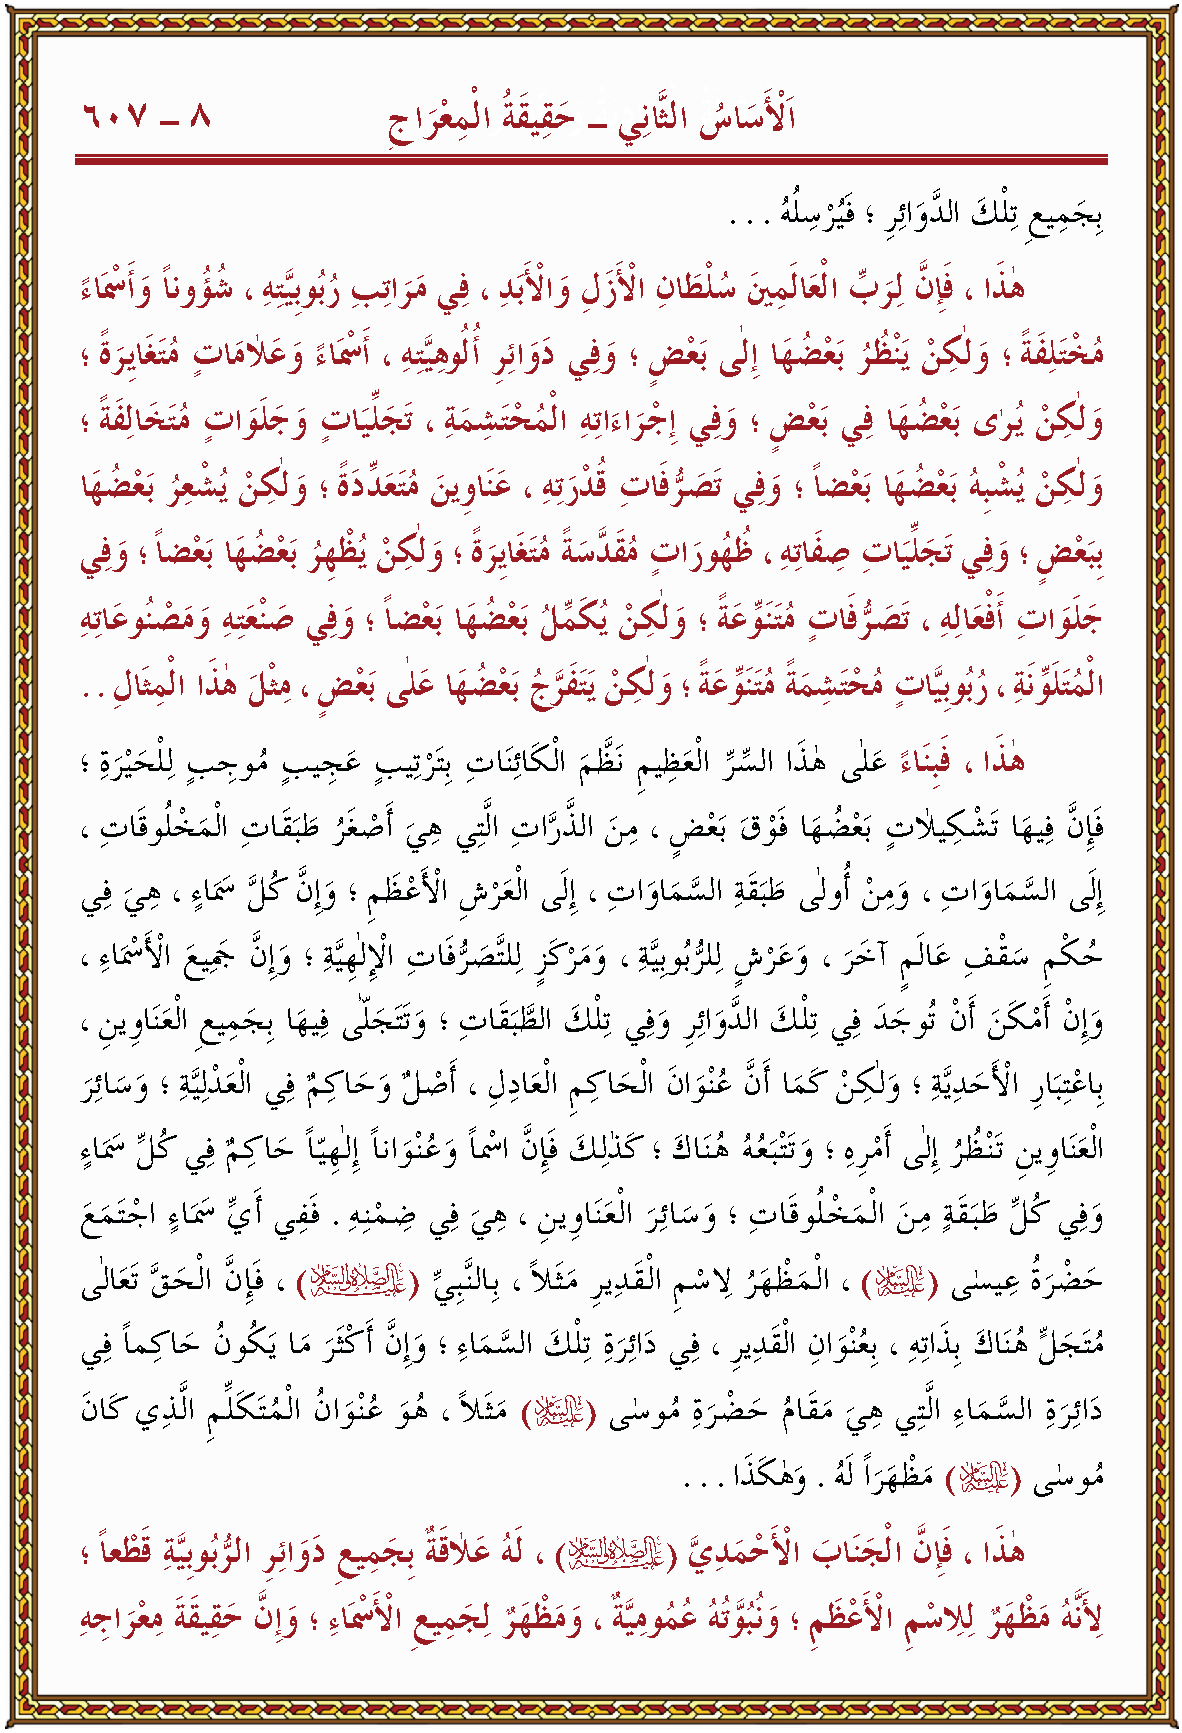 اَلْأَسَاسُ الثَّانِي ــ حَقِيقَةُ الْمِعْرَاجِ ٨ ــ ٦٠٧
بِجَمِيعِ تِلْكَ الدَّوَائِرِ ؛ فَيُرْسِلُهُ . . .
هٰذَا ، فَإِنَّ لِرَبِّ الْعَالَمِينَ سُلْطَانِ الْأَزَلِ وَالْأَبَدِ ، فِي مَرَاتِبِ رُبُوبِيَّتِهِ ، شُؤُوناً وَأَسْمَاءً
مُخْتَلِفَةً ؛ وَلٰكِنْ يَنْظُرُ بَعْضُهَا إِلٰى بَعْضٍ ؛ وَفِي دَوَائِرِ أُلُوهِيَّتِهِ ، أَسْمَاءً وَعَلاٰمَاتٍ مُتَغَايِرَةً ؛
وَلٰكِنْ يُرٰى بَعْضُهَا فِي بَعْضٍ ؛ وَفِي إِجْرَاءَاتِهِ الْمُحْتَشِمَةِ ، تَجَلِّيَاتٍ وَجَلَوَاتٍ مُتَخَالِفَةً ؛
وَلٰكِنْ يُشْبِهُ بَعْضُهَا بَعْضاً ؛ وَفِي تَصَرُّفَاتِ قُدْرَتِهِ ، عَنَاوِينَ مُتَعَدِّدَةً ؛ وَلٰكِنْ يُشْعِرُ بَعْضُهَا
بِبَعْضٍ ؛ وَفِي تَجَلِّيَاتِ صِفَاتِهِ ، ظُهُورَاتٍ مُقَدَّسَةً مُتَغَايِرَةً ؛ وَلٰكِنْ يُظْهِرُ بَعْضُهَا بَعْضاً ؛ وَفِي
جَلَوَاتِ أَفْعَالِهِ ، تَصَرُّفَاتٍ مُتَنَوِّعَةً ؛ وَلٰكِنْ يُكَمِّلُ بَعْضُهَا بَعْضاً ؛ وَفِي صَنْعَتِهِ وَمَصْنُوعَاتِهِ
الْمُتَلَوِّنَةِ ، رُبُوبِيَّاتٍ مُحْتَشِمَةً مُتَنَوِّعَةً ؛ وَلٰكِنْ يَتَفَرَّجُ بَعْضُهَا عَلٰى بَعْضٍ ، مِثْلَ هٰذَا الْمِثَالِ . .
هٰذَا ، فَبِنَاءً عَلٰى هٰذَا السِّرِّ الْعَظِيمِ نَظَّمَ الْكَائِنَاتِ بِتَرْتِيبٍ عَجِيبٍ مُوجِبٍ لِلْحَيْرَةِ ؛
فَإِنَّ فِيهَا تَشْكِيلاٰتٍ بَعْضُهَا فَوْقَ بَعْضٍ ، مِنَ الذَّرَّاتِ الَّتِي هِيَ أَصْغَرُ طَبَقَاتِ الْمَخْلُوقَاتِ ،
إِلَى السَّمَاوَاتِ ، وَمِنْ أُولٰى طَبَقَةِ السَّمَاوَاتِ ، إِلَى الْعَرْشِ الْأَعْظَمِ ؛ وَإِنَّ كُلَّ سَمَاءٍ ، هِيَ فِي
حُكْمِ سَقْفِ عَالَمٍ آخَرَ ، وَعَرْشٍ لِلرُّبُوبِيَّةِ ، وَمَرْكَزٍ لِلتَّصَرُّفَاتِ الْإِلٰهِيَّةِ ؛ وَإِنَّ جَمِيعَ الْأَسْمَاءِ ،
وَإِنْ أَمْكَنَ أَنْ تُوجَدَ فِي تِلْكَ الدَّوَائِرِ وَفِي تِلْكَ الطَّبَقَاتِ ؛ وَتَتَجَلّٰى فِيهَا بِجَمِيعِ الْعَنَاوِينِ ،
بِاعْتِبَارِ الْأَحَدِيَّةِ ؛ وَلٰكِنْ كَمَا أَنَّ عُنْوَانَ الْحَاكِمِ الْعَادِلِ ، أَصْلٌ وَحَاكِمٌ فِي الْعَدْلِيَّةِ ؛ وَسَائِرَ
الْعَنَاوِينِ تَنْظُرُ إِلٰى أَمْرِهِ ؛ وَتَتْبَعُهُ هُنَاكَ ؛ كَذٰلِكَ فَإِنَّ اسْماً وَعُنْوَاناً إِلٰهِيّاً حَاكِمٌ فِي كُلِّ سَمَاءٍ
وَفِي كُلِّ طَبَقَةٍ مِنَ الْمَخْلُوقَاتِ ؛ وَسَائِرَ الْعَنَاوِينِ ، هِيَ فِي ضِمْنِهِ . فَفِي أَيِّ سَمَاءٍ اجْتَمَعَ
حَضْرَةُ عِيسٰى (عَلَيْهِ السَّلَامُ) ، الْمَظْهَرُ لِاسْمِ الْقَدِيرِ مَثَلاً ، بِالنَّبِيِّ (عَلَيْهِ الصَّلَاةُ وَالسَّلَامُ) ، فَإِنَّ الْحَقَّ تَعَالٰى
مُتَجَلٍّ هُنَاكَ بِذَاتِهِ ، بِعُنْوَانِ الْقَدِيرِ ، فِي دَائِرَةِ تِلْكَ السَّمَاءِ ؛ وَإِنَّ أَكْثَرَ مَا يَكُونُ حَاكِماً فِي
دَائِرَةِ السَّمَاءِ الَّتِي هِيَ مَقَامُ حَضْرَةِ مُوسٰى (عَلَيْهِ السَّلَامُ) مَثَلاً ، هُوَ عُنْوَانُ الْمُتَكَلِّمِ الَّذِي كَانَ
مُوسٰى (عَلَيْهِ السَّلَامُ) مَظْهَراً لَهُ . وَهٰكَذَا . . .
هٰذَا ، فَإِنَّ الْجَنَابَ الْأَحْمَدِيَّ (عَلَيْهِ الصَّلَاةُ وَالسَّلَامُ) ، لَهُ عَلاٰقَةٌ بِجَمِيعِ دَوَائِرِ الرُّبُوبِيَّةِ قَطْعاً ؛
لِأَنَّهُ مَظْهَرٌ لِلِاسْمِ الْأَعْظَمِ ؛ وَنُبُوَّتُهُ عُمُومِيَّةٌ ، وَمَظْهَرٌ لِجَمِيعِ الْأَسْمَاءِ ؛ وَإِنَّ حَقِيقَةَ مِعْرَاجِهِ